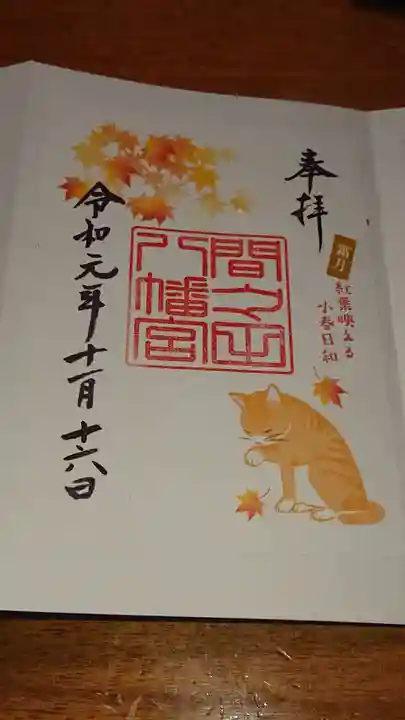 奉拝
霜月
紅葉映える
小春日和
間々田
八幡宮
令和元年十一月十六日